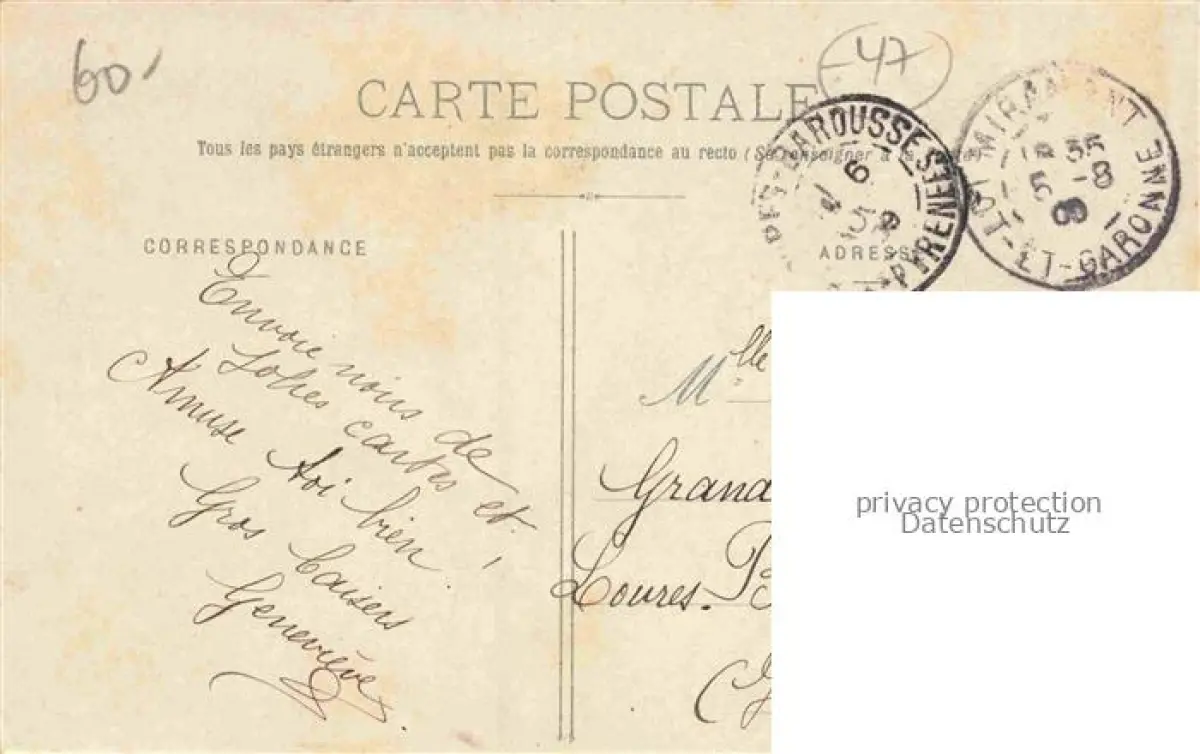 60.-
47
CARTE POSTALE
Tous les pays étrangers n'acceptent pas la correspondance au recto (Se renseigner à la
CORRESPONDANCE
ADRESSE
BAROUSSE
PYRENEES
6
MIRAMONT
LOT-ET-GARONNE
35
5 -8
Envoie nous de
Jolies cartes et
Amuse toi bien.
Gros baisers
Geneviève
Mlle
Grand
Loures. B
privacy protection
Datenschutz